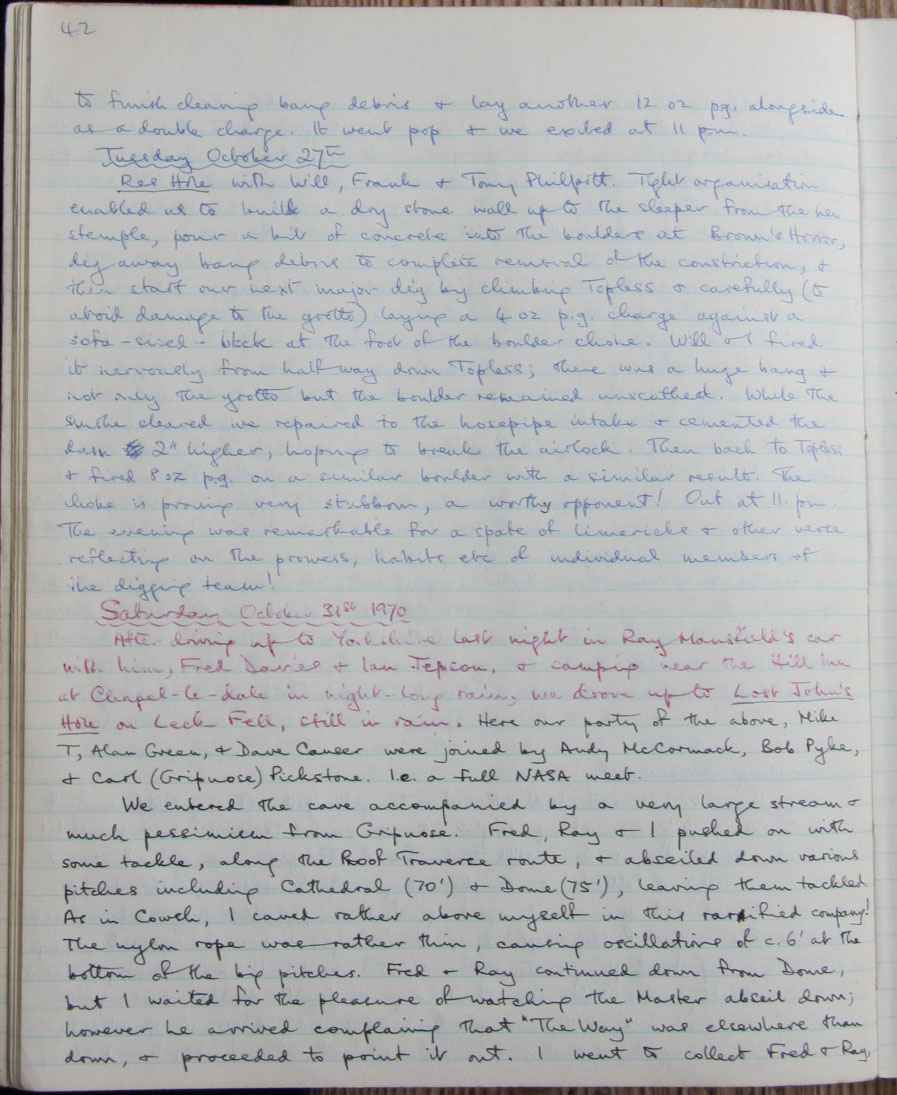 42
to finish clearing bang debris + lay another 12 oz p.g. alongside
as a double charge. It went pop + we exited at 11 pm.
Tuesday October 27th
Rea Hole with Will, Frank + Tony Philpott. Tight organisation
enabled us to build a dry stone wall up to the sleeper from the new
stemple, pour a bit of concrete into the boulders at Brown's Horror,
dig away bang debris to complete removal of the constriction, +
then start our next major dig by climbing Topless + carefully (to
avoid damage to the grotto) laying a 4 oz p.g. charge against a
sofa-sized block at the foot of the boulder choke. Will + I fired
it nervously from half way down Topless; there was a huge bang +
not only the grotto but the boulder remained unscathed. While the
smoke cleared we repaired to the hosepipe intake + cemented the
dam 2" higher, hoping to break the airlock. Then back to Topless
+ fired 8 oz p.g. on a similar boulder with a similar result. The
choke is proving very stubborn, a worthy opponent! Out at 11. pm
The evening was remarkable for a spate of limericks + other verse
reflecting on the prowess, habits etc of individual members of
the digging team!
Saturday October 31st 1970
After driving up to Yorkshire last night in Ray Mansfield's car
with him, Fred Davies + Ian Jepson, + camping near the Hill Inn
at Chapel-le-dale in night-long rain, we drove up to Lost John's
Hole on Leck Fell, still in rain. Here our party of the above, Mike
T, Alan Green, + Dave Causer were joined by Andy McCormack, Bob Pyke,
+ Carl (Gripnose) Pickstone. I.e. a full NASA meet.
We entered the cave accompanied by a very large stream +
much pessimism from Gripnose. Fred, Ray + I pushed on with
some tackle, along the Roof Traverse route, + abseiled down various
pitches including Cathedral (70') + Dome (75'), leaving them tackled
As in Cowsh, I caved rather above myself in this rarified company!
The nylon rope was rather thin, causing oscillations of c. 6' at the
bottom of the big pitches. Fred + Ray continued down from Dome,
but I waited for the pleasure of watching the Master abseil down;
however he arrived complaining that "The Way" was elsewhere than
down, + proceeded to point it out. I went to collect Fred + Ray,